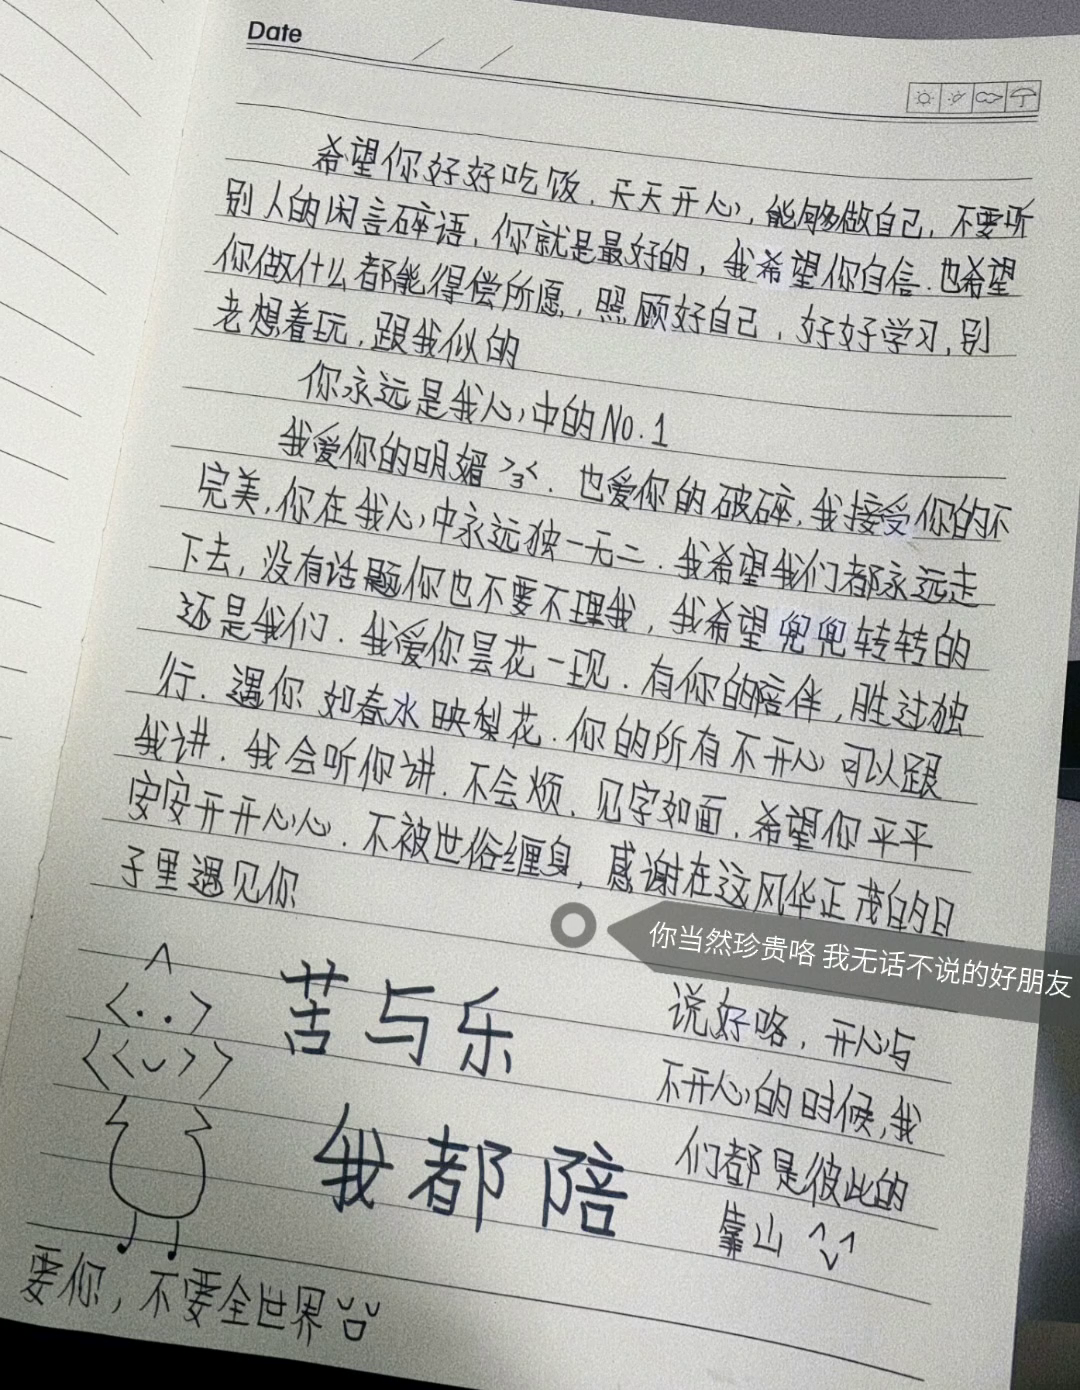 Date
希望你好好吃饭，天天开心，能够做自己，不要听
别人的闲言碎语，你就是最好的，我希望你自信.也希望
你做什么都能得偿所愿，照顾好自己，好好学习，别
老想着玩，跟我似的
你永远是我心中的No.1
我爱你的明媚>3<.也爱你的破碎，我接受你的不
完美，你在我心中永远独一无二.我希望我们都永远走
下去，没有话题你也不要不理我，我希望兜兜转转的
还是我们.我爱你昙花一现.有你的陪伴，胜过独
行.遇你如春水映梨花.你的所有不开心可以跟
我讲.我会听你讲.不会烦.见字如面.希望你平平
安安开开心心.不被世俗缠身，感谢在这风华正茂的日
子里遇见你
你当然珍贵咯 我无话不说的好朋友
苦与乐
我都陪
说好咯，开心与
不开心的时候，我
们都是彼此的
靠山
要你，不要全世界